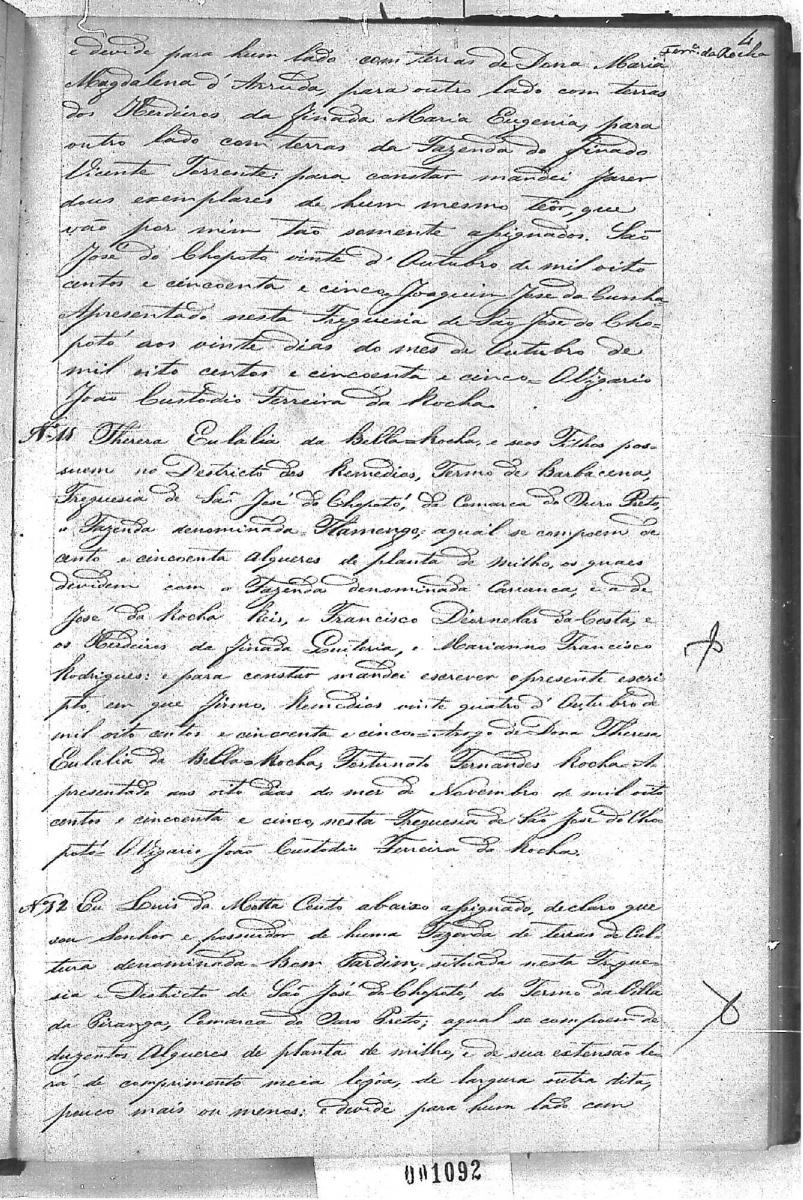 4
Ferra. da Rocha
e devide para hum lado com terras de Dona Maria
Magdalena d'Arruda, para outro lado com terras
dos Herdeiros da finada Maria Eugenia, para
outro lado com terras da Fazenda do finado
Vicente Torrente: para constar mandei fazer
dous exemplares de hum mesmo teôr, que
vão por mim tão somente assignados. São
José do Chopotó vinte d'Outubro de mil oito
centos e cincoenta e cinco. Joaquim José da Cunha
Apresentado nesta Freguesia de São José do Cho=
potó aos vinte dias do mes de Outubro de
mil oito centos e cincoenta e cinco= O Vigario
João Custodio Ferreira da Rocha.
Nº 11 Thereza Eulalia da Bella=Rocha, e seos Filhos pos=
suem no Destricto dos Remedios, Termo de Barbacena,
Freguesia de São José do Chopotó, da Comarca do Ouro Preto,
a Fazenda denominada=Flamengo; aqual se compoem de
cento e cincoenta alqueres de planta de milho, os quaes
devidem com a Fazenda denominada Carranca, e a de
José da Rocha Reis, e Francisco Diornelas da Costa, e
os Herdeiros da finada Quiteria, e Marianno Francisco
Rodrigues: e para constar mandei escrever o presente escri
pto, em que firmo. Remedios vinte quatro d'Outubro de
mil oito centos e cincoenta e cinco=A rogo de Dona Theresa
Eulalia da Bella=Rocha, Fortunato Fernandes Rocha=A
presentado aos oito dias do mez de Novembro de mil oito
centos e cincoenta e cinco, nesta Freguesia de São José do Cho
potó= O Vigario João Custodio Ferreira da Rocha.
Nº 12 Eu Luis da Motta Couto abaixo assignado, declaro que
sou Senhor e possuidor de huma Fazenda de terras de Cul=
tura denominada=Bom Jardim, situada nesta Fregue=
sia e Destricto de São José do Chopotó, do Termo da Villa
da Piranga, Comarca do Ouro Preto; aqual se compoem de
duzentos Alqueres de planta de milho, e de sua extensão te=
rá de comprimento meia legôa, de largura outra dita,
pouco mais ou menos: e devide para hum lado com
001092